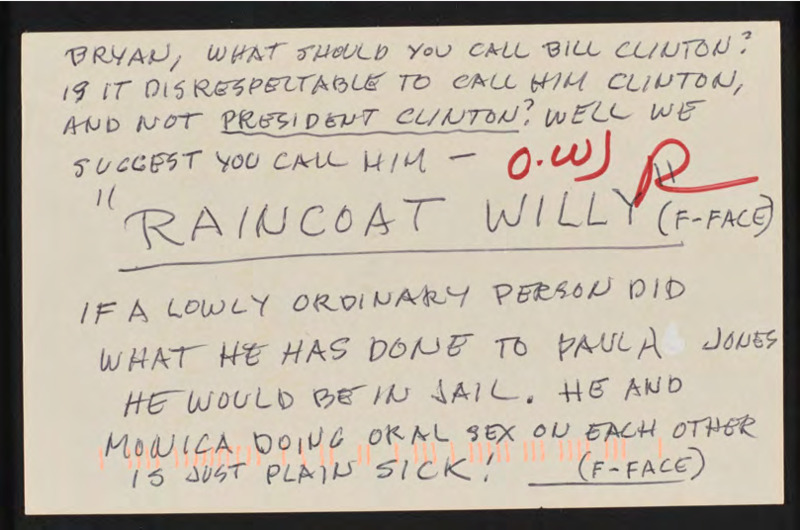 BRYAN, WHAT SHOULD YOU CALL BILL CLINTON?
IS IT DISRESPECTABLE TO CALL HIM CLINTON,
AND NOT PRESIDENT CLINTON? WELL WE
SUGGEST YOU CALL HIM —
O.W) R
"RAINCOAT WILLY" (F-FACE)
IF A LOWLY ORDINARY PERSON DID
WHAT HE HAS DONE TO PAULA JONES
HE WOULD BE IN JAIL. HE AND
MONICA DOING ORAL SEX ON EACH OTHER
IS JUST PLAIN SICK! (F-FACE)